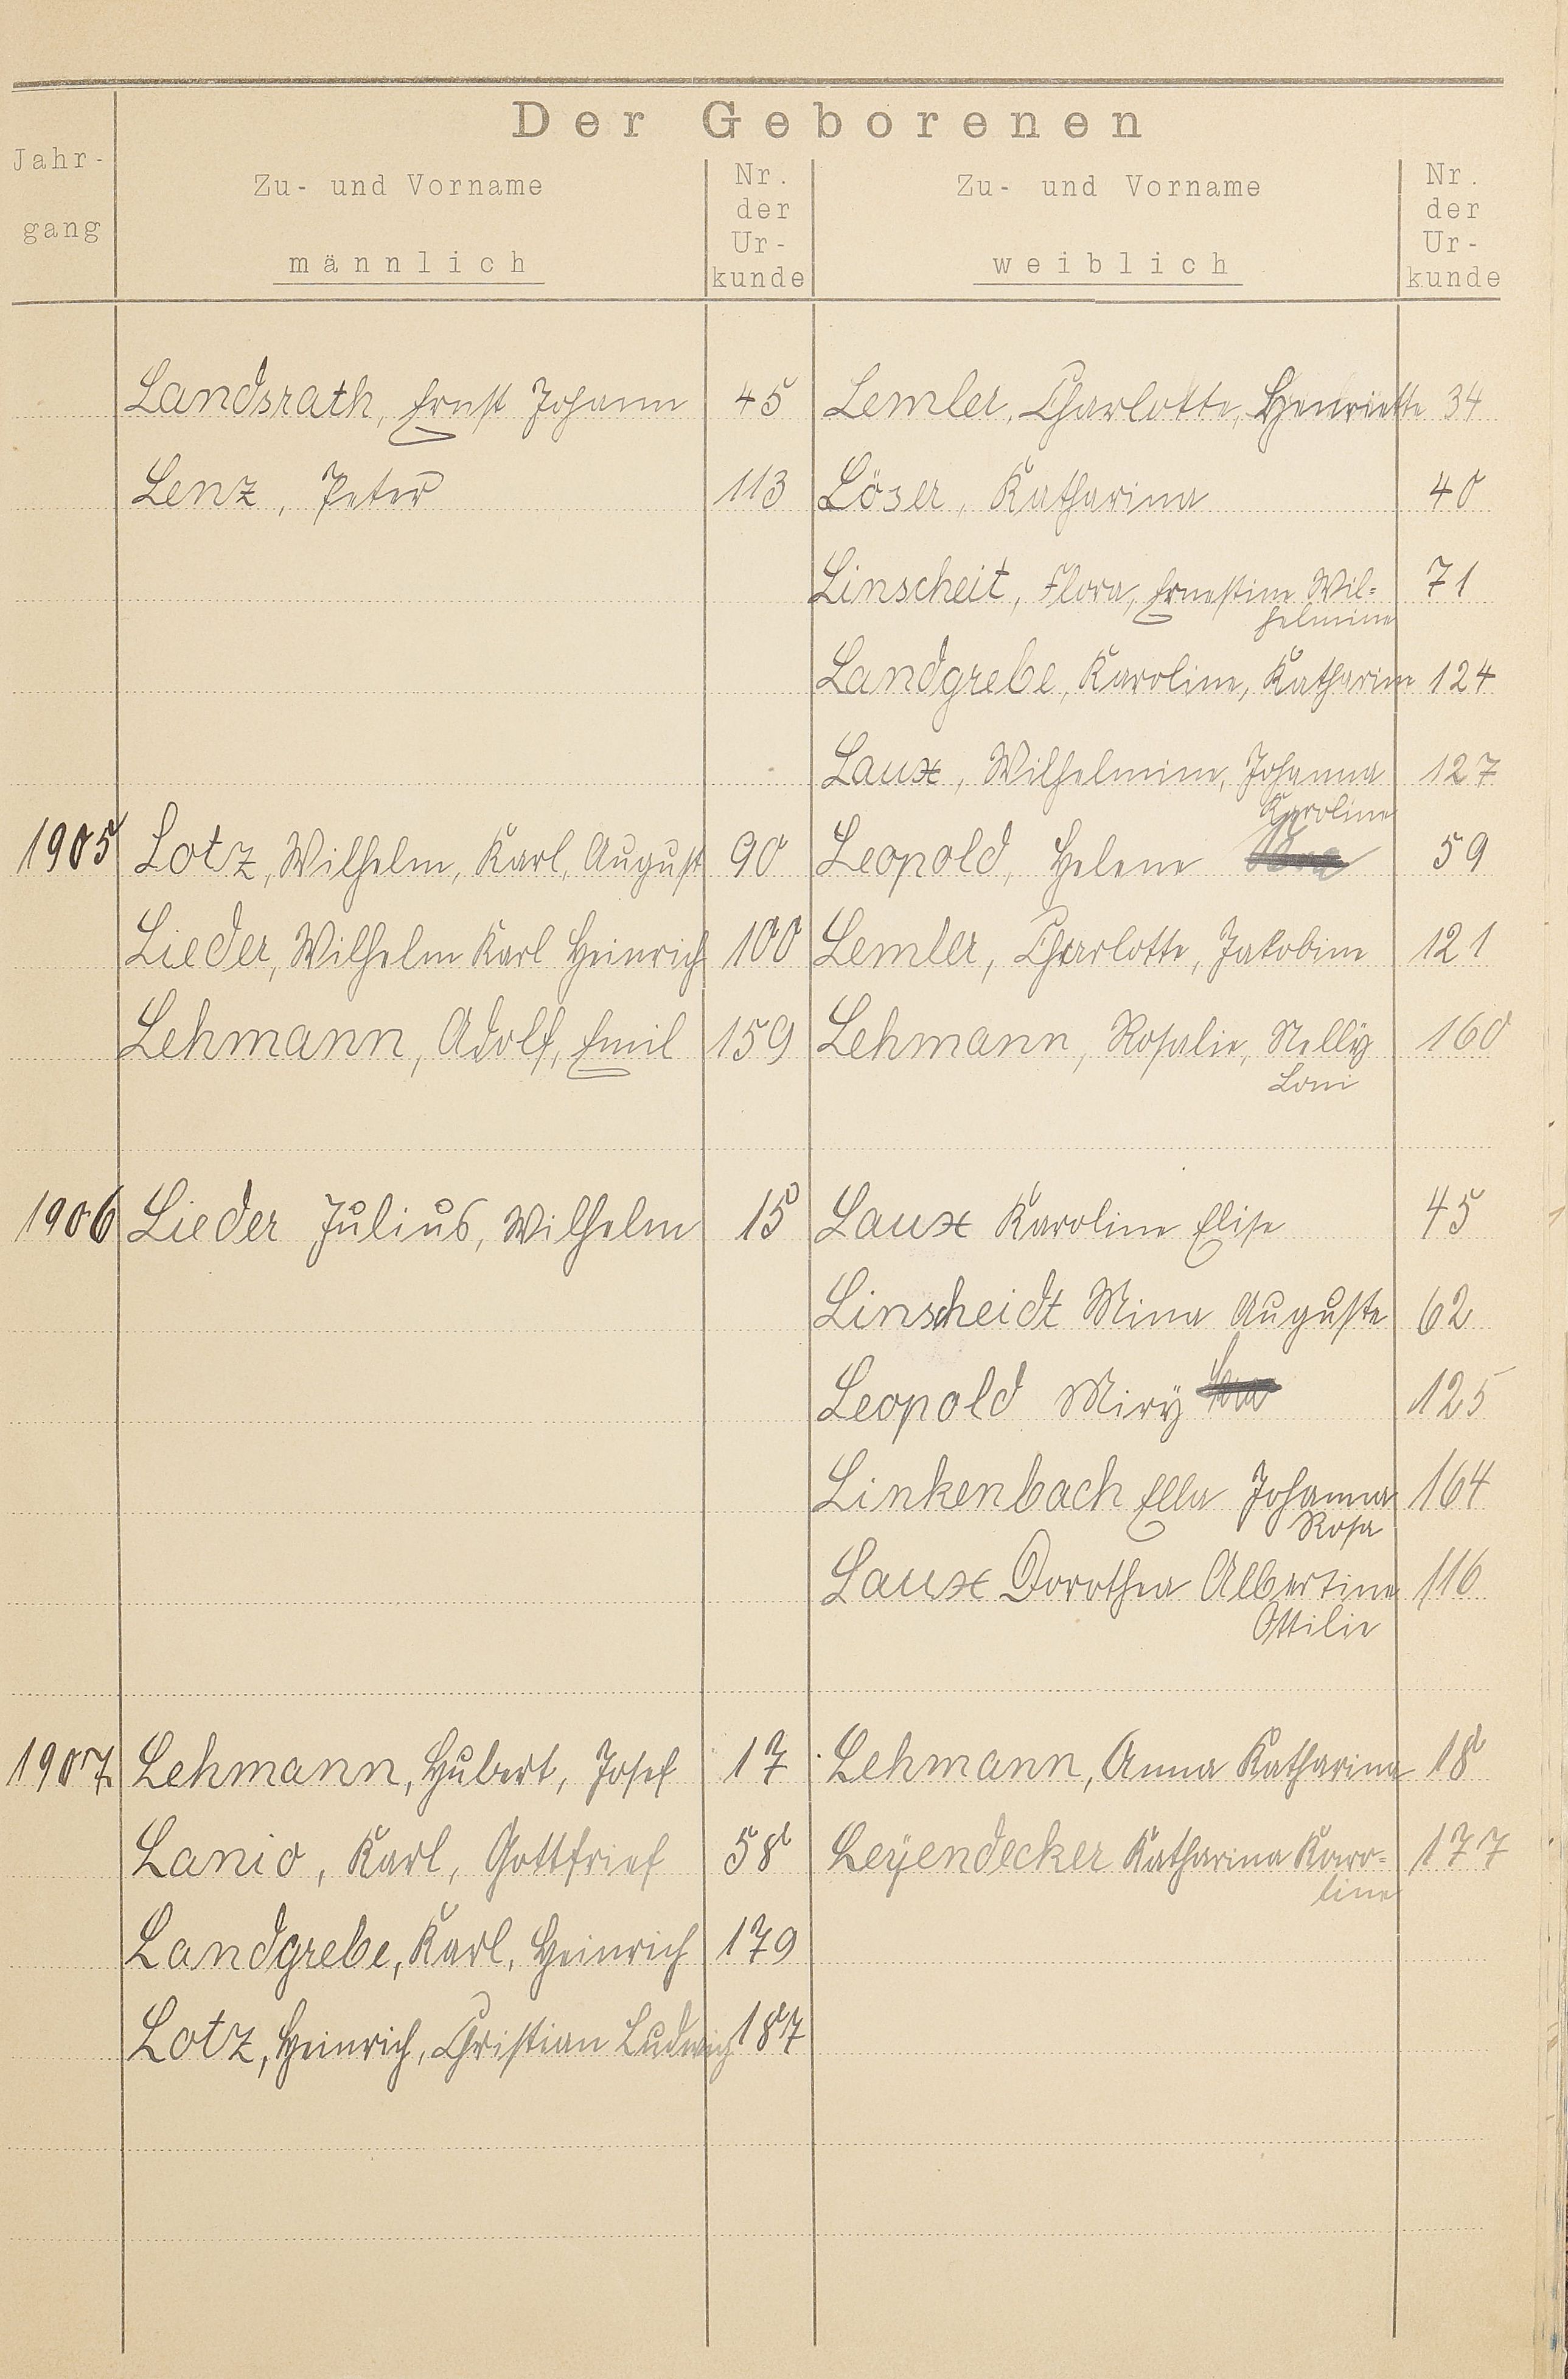 Der Geborenen
Jahr-
gang
Zu- und Vorname
männlich
Nr.
der
Ur-
kunde
Zu- und Vorname
weiblich
Nr.
der
Ur-
kunde
Landsrath, Ernst Johann 45 Lemler, Charlotte, Henriette 34
Lenz, Peter 113 Löser, Katharina 40
Linscheit, Flora, Ernestine Wil= 71
helmine
Landgrebe, Karoline, Katharine 124
Laux, Wilhelmine, Johanna 127
Karoline
1905 Lotz, Wilhelm, Karl, August 90 Leopold, Helene 59
Lieder, Wilhelm Karl Heinrich 100 Lemler, Charlotte, Jakobine 121
Lehmann, Adolf, Emil 159 Lehmann, Rosalie, Nelly 160
Loni
1906 Lieder Julius, Wilhelm 15 Laux Karoline Elise 45
Linscheidt Mina Auguste 62
Leopold Miry 125
Linkenbach Ella Johanna 164
Rosa
Laux Dorothea Albertine 116
Ottilie
1907 Lehmann, Hubert, Josef 17 Lehmann, Anna Katharina 18
Lanio, Karl, Gottfried 58 Leyendecker Katharina Karo= 177
line
Landgrebe, Karl, Heinrich 179
Lotz, Heinrich, Christian Ludwig 187